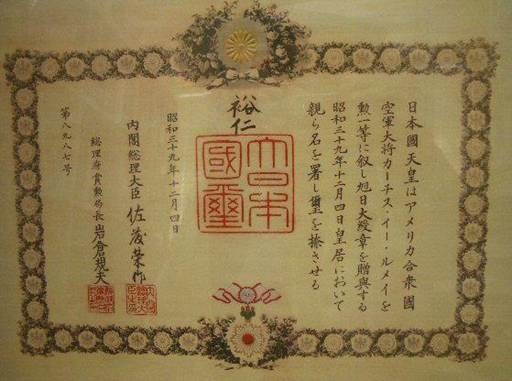 日本國天皇はアメリカ合衆國
空軍大将カーチス・イー・ルメイを
勲一等に叙し旭日大綬章を贈與する
昭和三十九年十二月四日皇居において
親ら名を署し璽を捺させる
裕仁
大日本
國璽
昭和三十九年十二月四日
内閣総理大臣 佐藤榮作
総理府賞勲局長 岩倉規夫
第八九八七号